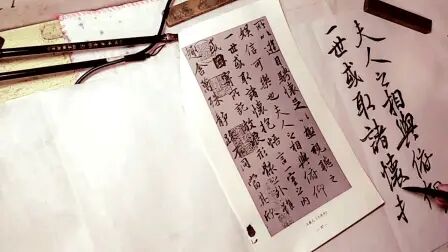 夫人之相與俯
一世或取諸懷
所以遊目騁懷足以極視聽之
娛信可樂也夫人之相與俯仰
一世或取諸懷抱悟言一室之內
或因寄所託放浪形骸之外雖
趣舍萬殊靜躁不同當其欣